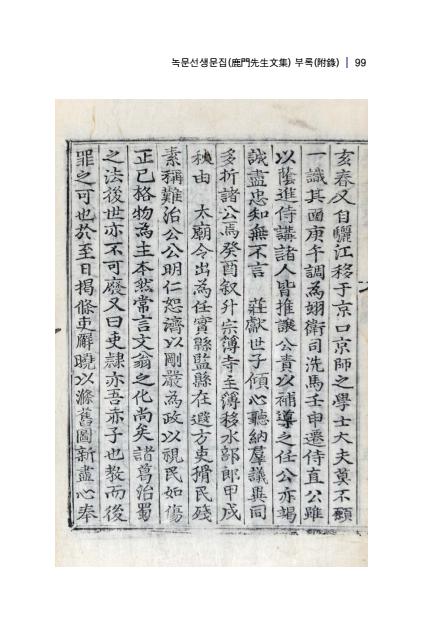 녹문선생문집(鹿門先生文集) 부록(附錄) | 99
亥春又自驪江移于京口京師之學士大夫莫不願
一識其面庚午調爲翊衛司洗馬壬申遷侍直公雖
以蔭進侍講諸人皆推讓公責以補導之任公亦竭
誠盡忠知無不言 莊獻世子傾心聽納羣議異同
多折諸公焉癸酉叙升宗簿寺主簿移水部郞甲戌
秋由 太廟令出爲任實縣監縣在遐方吏猾民殘
素稱難治公公明仁恕濟以剛嚴爲政以視民如傷
正己格物爲主本然常言文翁之化尚矣諸葛治蜀
之法後世亦不可廢又曰吏隷亦吾赤子也敎而後
罪之可也於至日揭條吏廨曉以滌舊圖新盡心奉